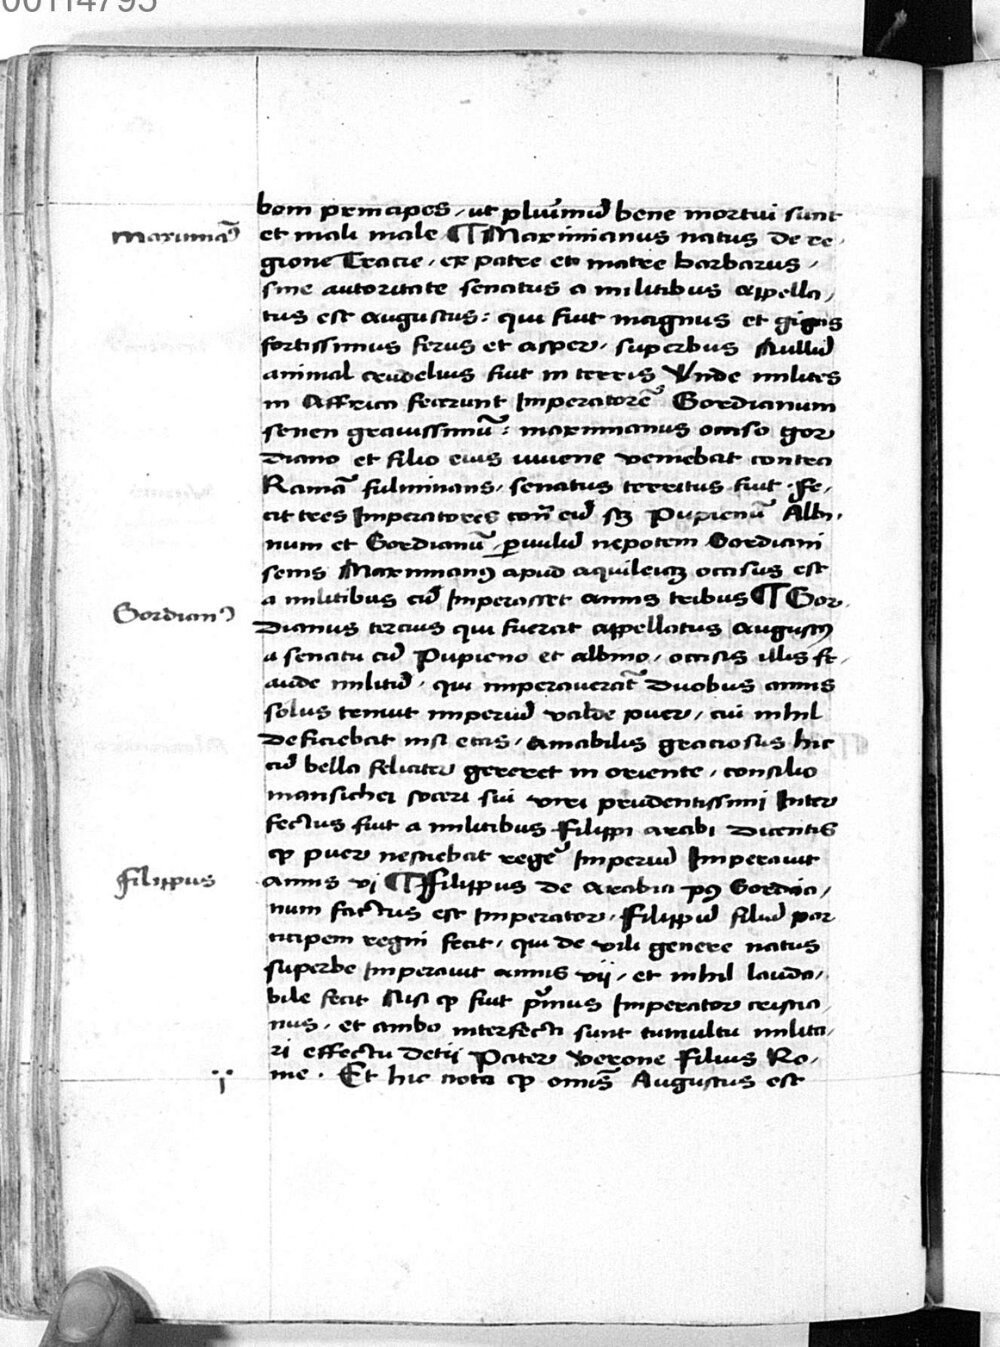 00114795
boni principes, ut plurimuȝ bene mortui sunt
Maximiãꝰ
et mali male ¶ Maximianus natus de re,
gione Tracie, ex patre et matre barbarus,
sine autoritate senatus a militibus appella,
tus est augustus: qui fuit magnus et gigas
fortissimus ferus et asper, superbus Nulluȝ
animal crudelius fuit in terris Vnde milites
in Affrica fecerunt Imperatorē Gordianum
senen grauissimū: maximianus occiso gor
diano et filio eius iuuene veniebat contra
Ramã fulminans, senatus territus fuit. fe,
cit tres Imperatores cont̃ euȝ sȝ Pupienū Albi,
num et Gordianū ꝑuuluȝ nepotem Gordiani
senis Maximianꝰ apud aquileiaȝ occisus est
a militibus cuȝ Imperasset annis tribus ¶ Gor,
Gordianꝰ
dianus tercius qui fuerat appellatus Augustꝰ
a senatu cuȝ Pupieno et albino, occisis illis fr,
aude milituȝ, qui imperauerāt duobus annis
solus tenuit imperiuȝ valde puer, cui nihil
deficiebat nisi etas, Amabilis graciosus hic
cuȝ bella feliciter gereret in oriente, consilio
mansichei soceri sui viri prudentissimi Inter
fectus fuit a militibus Filippi arabi dicentis
ꝙ puer nesciebat regeȝ Imperiuȝ Imperauit
Filippus
annis vj ¶ Filippus de Arabia pꝰ Gordia,
num factus est Imperator, Filippuȝ filiuȝ par
ticipem regni fecit, qui de vili genere natus
superbe Imperauit annis vij, et nihil lauda,
bile fecit Nisi ꝙ fuit pͥmus Imperator cristia,
nus, et ambo interfecti sunt tumultu milita,
ri effectu detij Pater Verone Filius Ro,
me. Et hic nota ꝙ omīs Augustus est